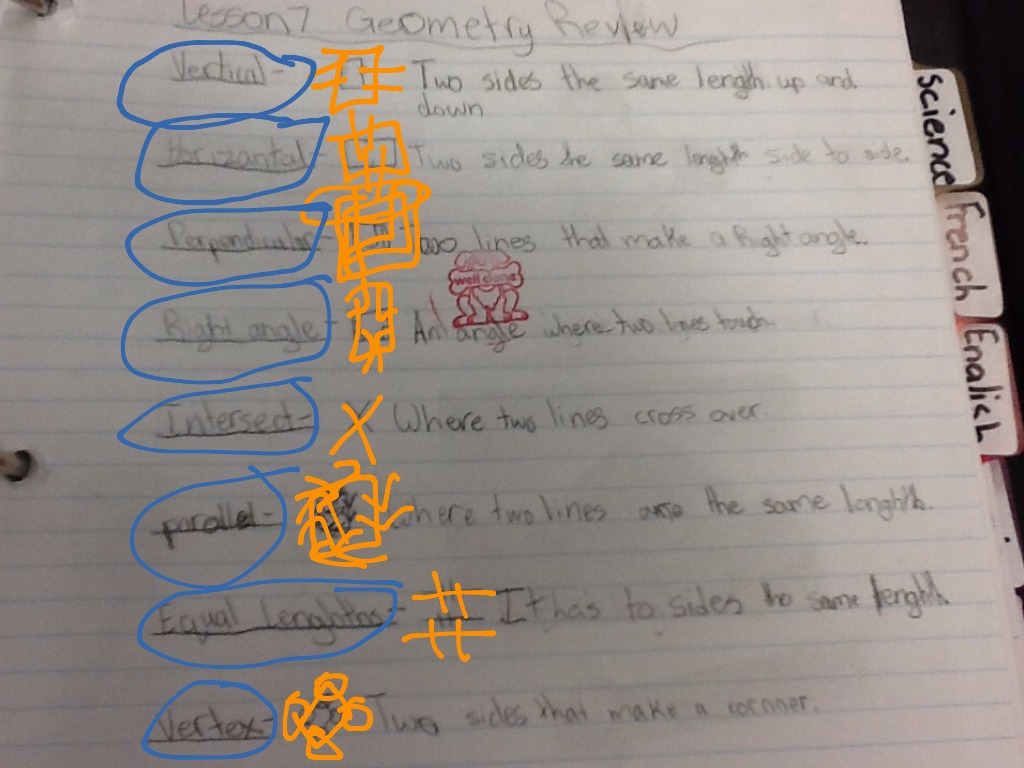 Lesson 7 Geometry Review
Vertical - Two sides the same length up and
down
Horizantal - Two sides the same length side to side.
Perpendicular - Two lines that make a Right angle.
well done
Right angle - An angle where two lines touch.
Intersect - Where two lines cross over.
parallel - where two lines are the same lenghth.
Equal Lenghths - It has to sides the same lenghth.
Vertex - Two sides that make a cornner.
Science
French
English